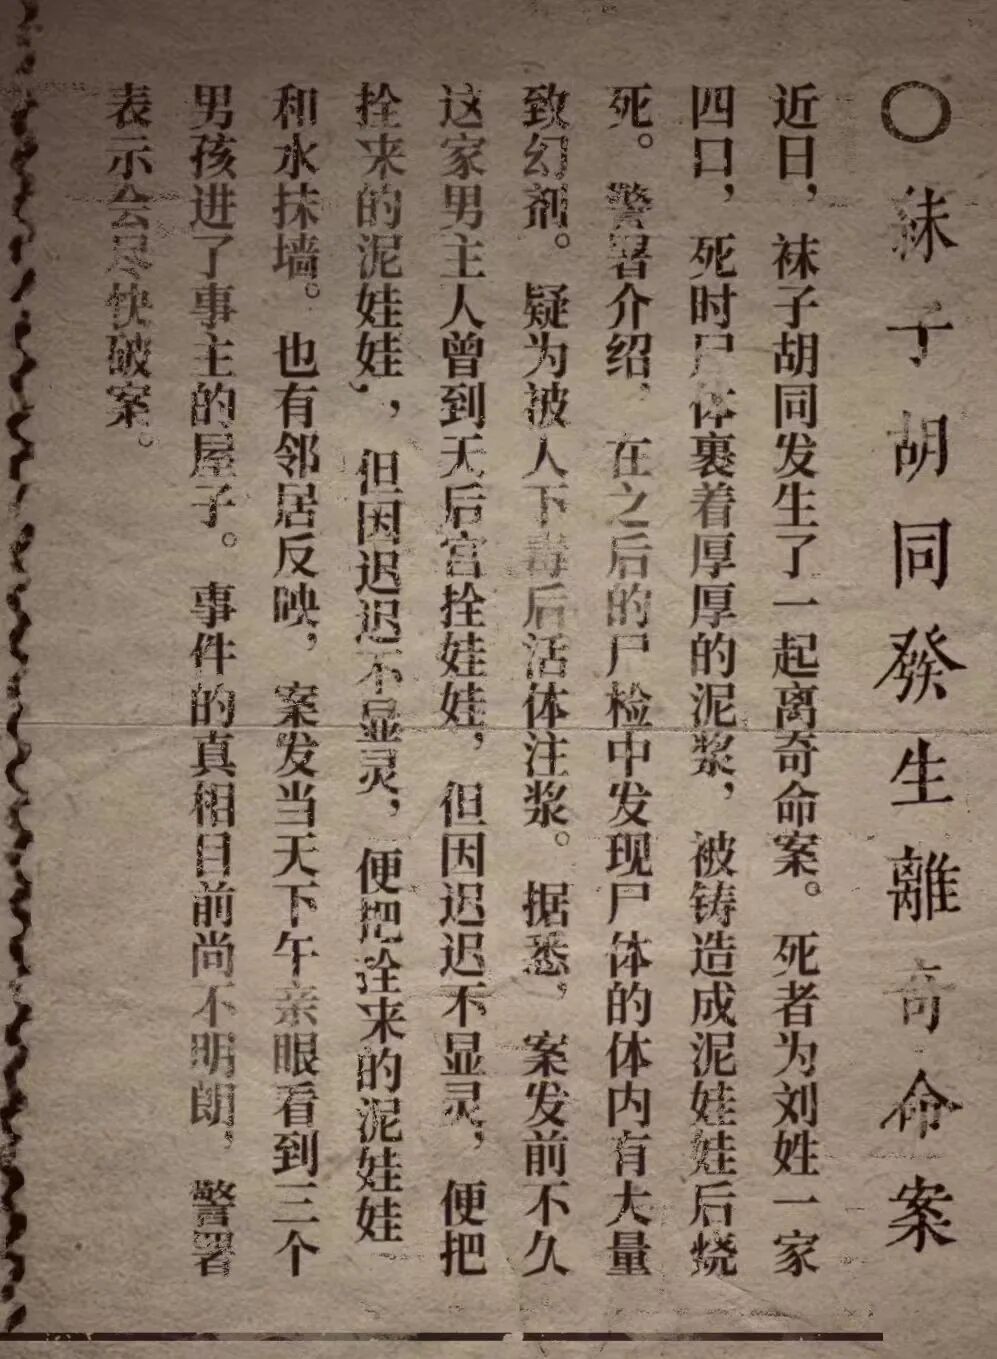 〇袜子胡同發生離奇命案
近日，袜子胡同发生了一起离奇命案。死者为刘姓一家
四口，死时尸体裹着厚厚的泥浆，被铸造成泥娃娃后烧
死。警署介绍，在之后的尸检中发现尸体的体内有大量
致幻剂。疑为被人下毒后活体注浆。据悉，案发前不久
这家男主人曾到天后宫拴娃娃，但因迟迟不显灵，便把
拴来的泥娃娃，但因迟迟不显灵，便把拴来的泥娃娃
和水抹墙。也有邻居反映，案发当天下午亲眼看到三个
男孩进了事主的屋子。事件的真相目前尚不明朗，警署
表示会尽快破案。